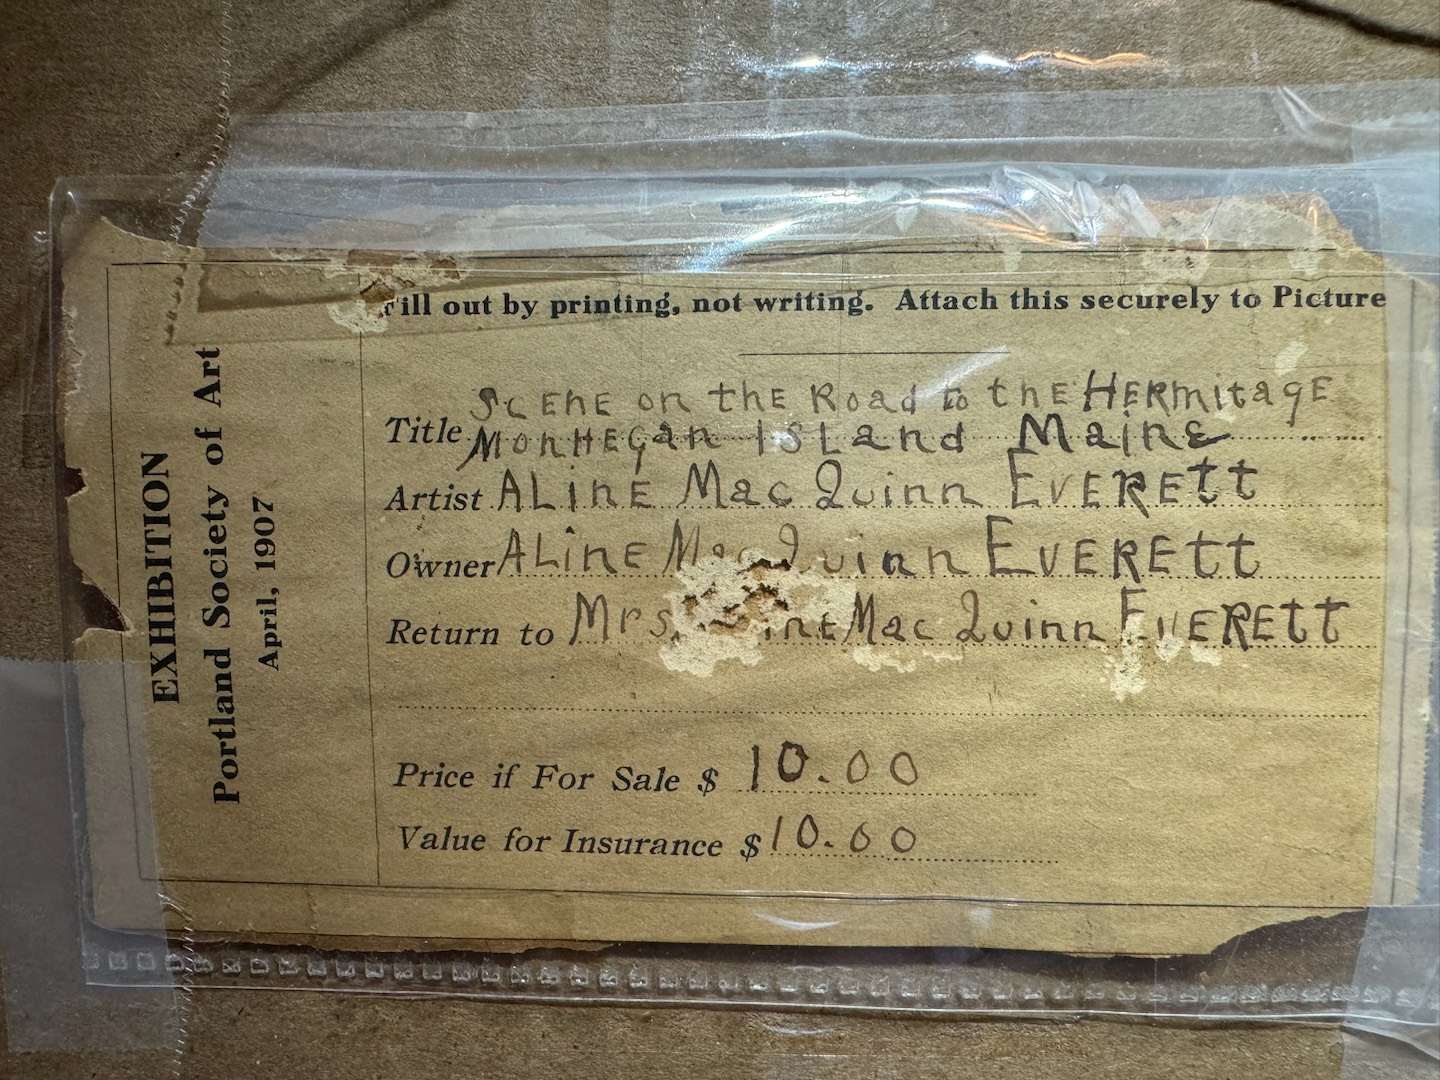 EXHIBITION
Portland Society of Art
April, 1907
Fill out by printing, not writing. Attach this securely to Picture
Title ScEnE on the Road to thE HERmitagE
MonHEgan ISLand MainE
Artist ALinE Mac Quinn EvEREtt
Owner ALinE Mac Quinn EvEREtt
Return to Mrs. Mac Quinn EvEREtt
Price if For Sale $ 10.00
Value for Insurance $ 10.00